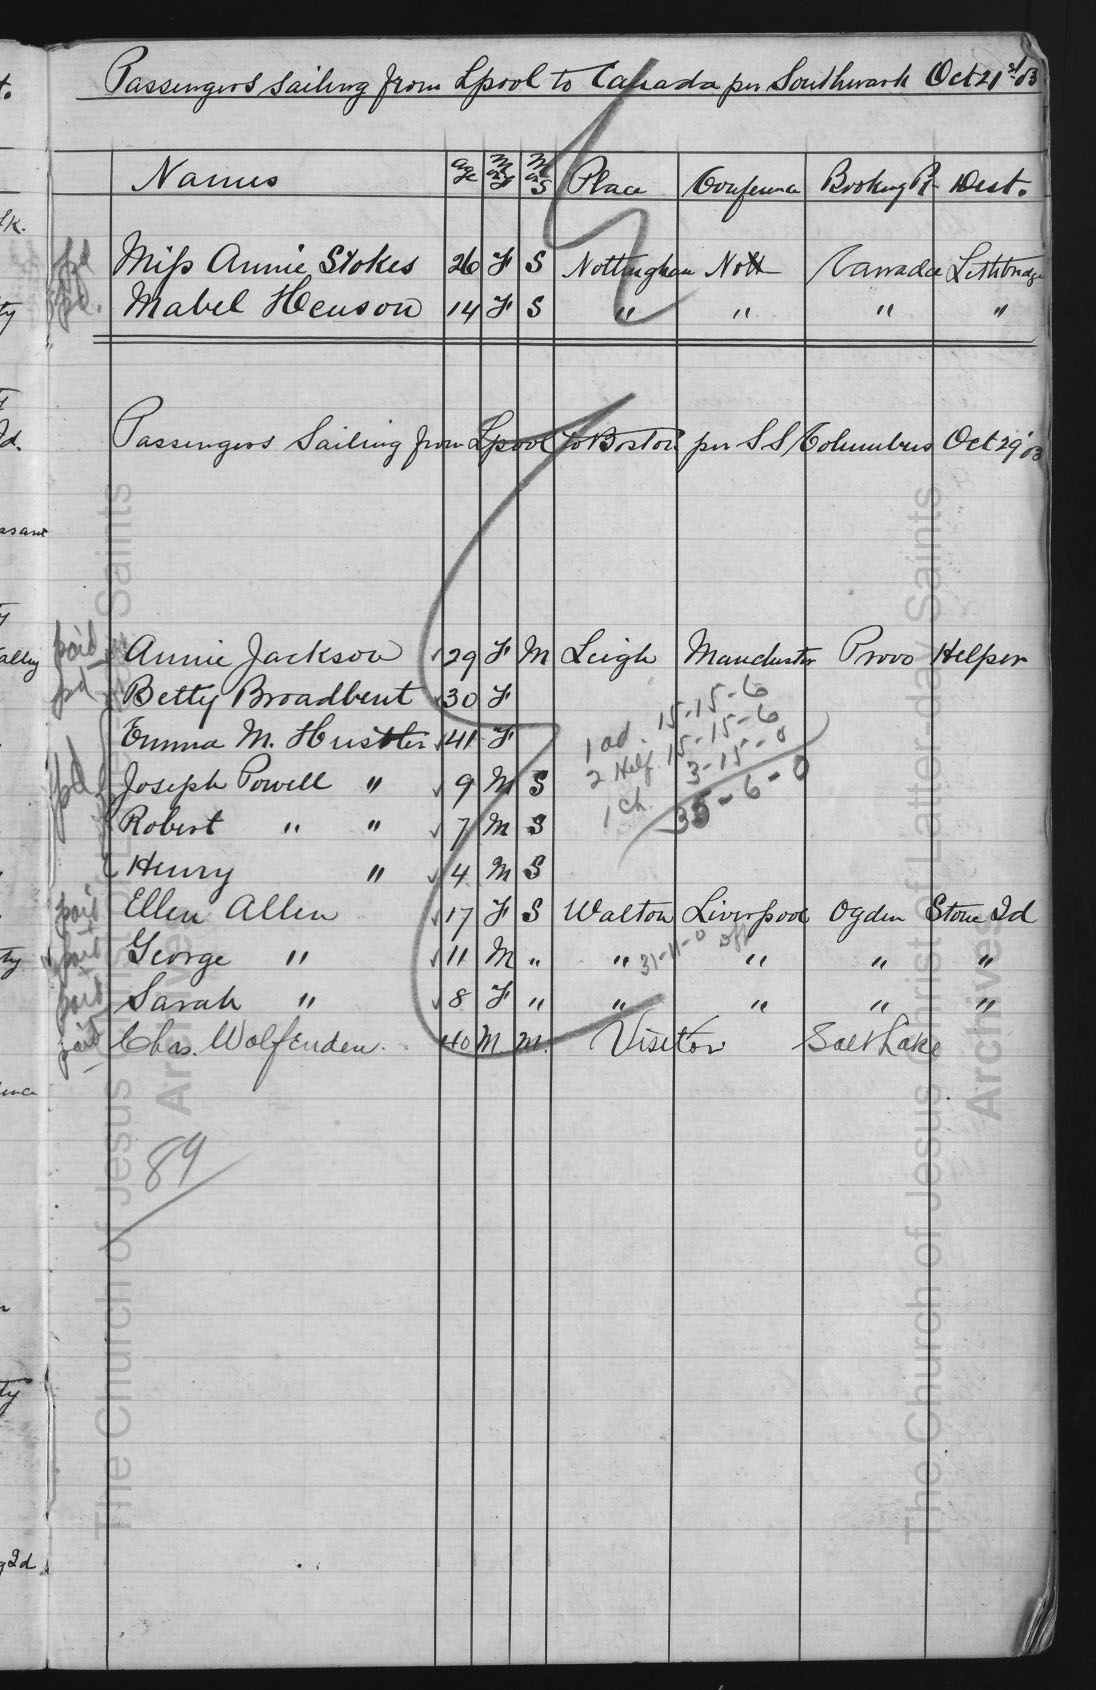 Passengers sailing from Lpool to Canada per Southwark Oct 21st 03
Names age M or F M or S Place Conference Booking Pt Dest.
pd Miss Annie Stokes 26 F S Nottingham Nott Canada Lethbridge
pd. Mabel Henson 14 F S " " " "
Passengers Sailing from Lpool to Boston per S S Columbus Oct 29 '03
paid Annie Jackson 29 F M Leigh Manchester Provo Helper
pd Betty Broadbent 30 F
Emma M. Hustler 41 F
1 ad. 15-15-6
2 Half 15-15-6
1 Ch. 3-15-0
35-6-0
pd Joseph Powell " 9 M S
Robert " " 7 M S
Henry " 4 M S
paid Ellen Allen 17 F S Walton Liverpool Ogden Stone Id
paid George " 11 M " " " " "
31-11-0
paid Sarah " 8 F " " " " "
paid Chas. Wolfenden. 40 M. M. Visitor Salt Lake
89
The Church of Jesus Christ of Latter-day Saints
Archives
The Church of Jesus Christ of Latter-day Saints
Archives